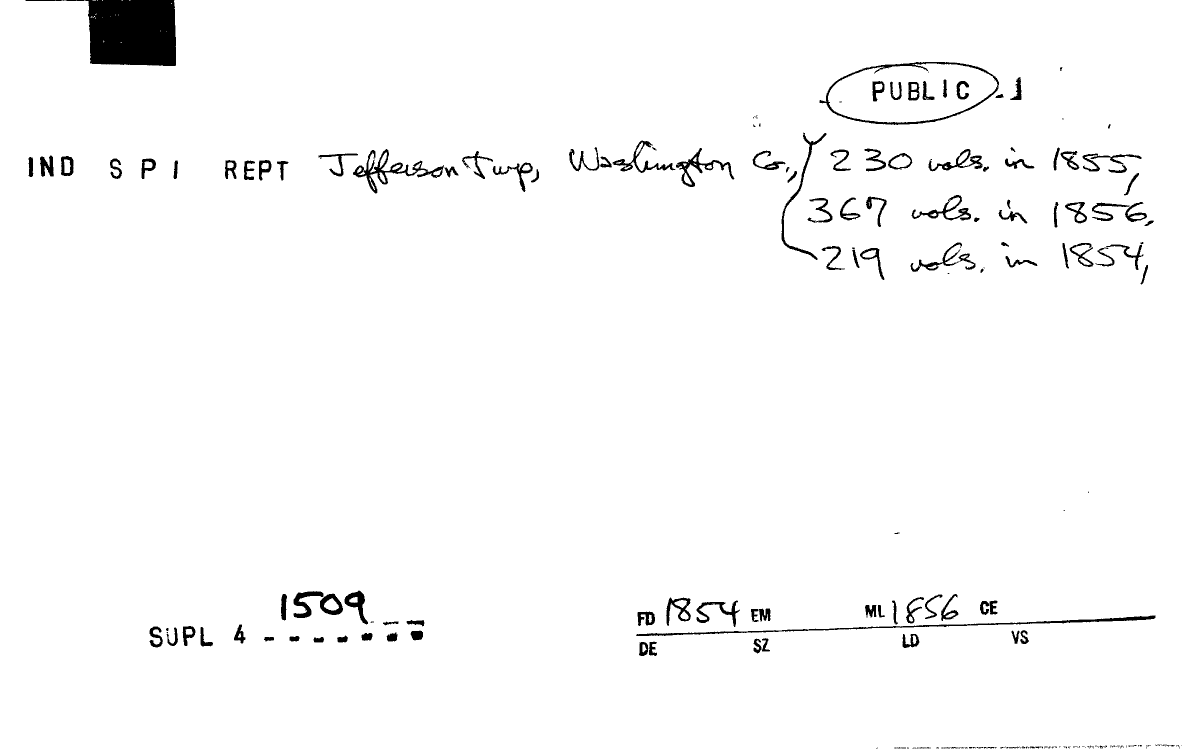 PUBLIC
IND S P I REPT Jefferson Twp, Washington Co., 230 vols. in 1855,
367 vols. in 1856.
219 vols. in 1854,
1509
SUPL 4
FD 1854 EM ML 1856 CE
DE SZ LD VS